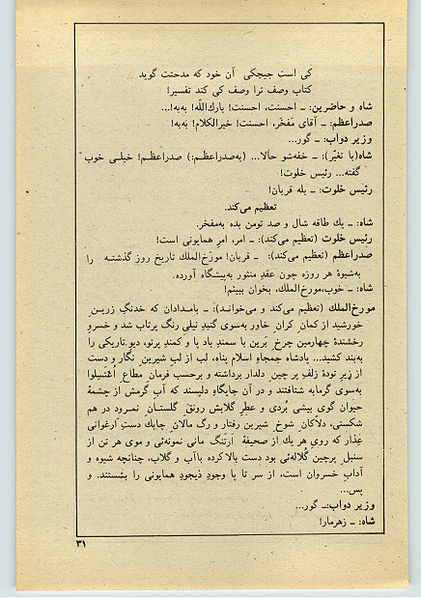 کی است جیجکی آن خود که مدحتت گوید
کتاب وصف ترا وصف کی کند تفسیر!
شاه و حاضرین: ــ احسنت، احسنت! بارك‌اللّه! به‌به!...
صدراعظم: ــ آقای مَفخَر، احسنت! خیرالکلام! به‌به!
وزیر دواب: ــ گور...
شاه (با تغیّر): ــ خفه‌شو حالا... (به‌صدراعظم:) صدراعظم! خیلی خوب
گفته... رئیس خلوت!
رئیس خلوت: ــ بله قربان!
تعظیم می‌کند.
شاه: ــ یك طاقه شال و صد تومن بده به‌مفخر.
رئیس خلوت (تعظیم می‌کند): ــ امر، امرِ همایونی است!
صدراعظم (تعظیم می‌کند): ــ قربان! مورّخ‌الملك تاریخ روز گذشته را
به‌شیوهٔ هر روزه چون عقدِ منثور به‌پیشگاه آورده.
شاه: ــ خوب، مورخ‌الملك، بخوان ببینم!
مورخ‌الملك (تعظیم می‌کند و می‌خواند): ــ بامدادان که خدنگِ زرینِ
خورشید از کمان کرانِ خاور به‌سوی گنبدِ نیلی رنگ پرتاب شد و خسروِ
رخشندهٔ چهارمین چرخِ برین با سمندِ باد پا و کمندِ پرتو، دیوِ تاریکی را
به‌بند کشید... پادشاه جمجاهِ اسلام پناه، لب از لبِ شیرینِ نگار و دست
از زیرِ تودهٔ زلفِ پر چینِ دلدار برداشته و برحسب فرمانِ مطاعِ اُغتَسِلوا
به‌سوی گرمابه شتافتند و در آن جایگاهِ دلپسند که آبِ گرمش از چشمهٔ
حیوان گوی پیشی بُردی و عطرِ گلابش رونقِ گلستانِ نمرود در هم
شکستی، دلاکانِ شوخِ شیرین رفتار و رگ مالانِ چابك دستِ ارغوانی
عِذار که روی هر یك از صحیفهٔ ارتنگِ مانی نمونه‌ئی و موی هر تن از
سنبلِ پرچین کُلاله‌ئی بود دست بالا کرده باآب و گلاب، چنانچه شیوه و
آدابِ خسروان است، از سر تا پا وجودِ ذیجودِ همایونی را بشستند. و
پس...
وزیر دواب: ــ گور...
شاه: ــ زهرمار!
۳۱